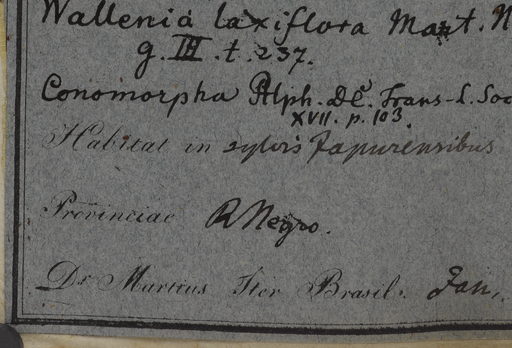 Wallenia laxiflora Mart. N
g. III. t. 237.
Conomorpha Alph. DC. Trans. L. Soc
XVII. p. 103.
Habitat in sylvis Japurensibus
Provinciae R Negro.
Dr Martius Iter Brasil. Jan.